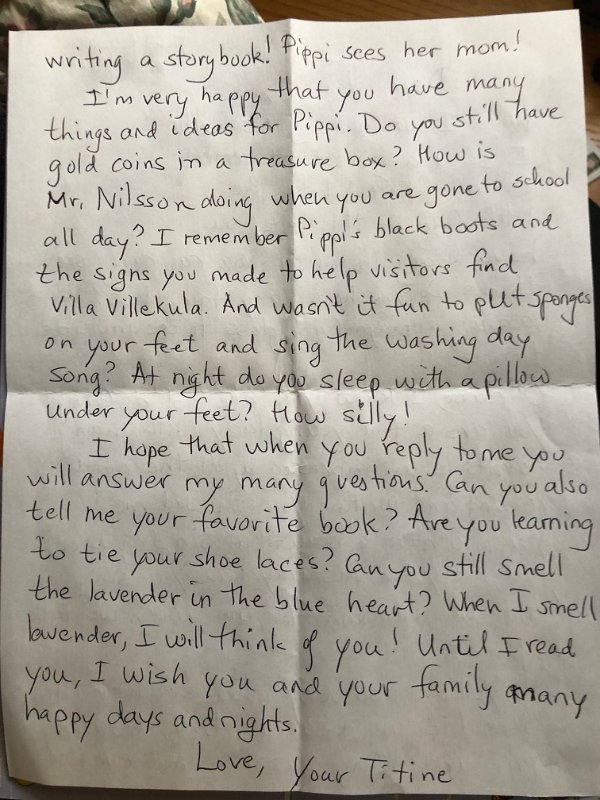 writing a storybook! Pippi sees her mom!
I'm very happy that you have many
things and ideas for Pippi. Do you still have
gold coins in a treasure box? How is
Mr. Nilsson doing when you are gone to school
all day? I remember Pippi's black boots and
the signs you made to help visitors find
Villa Villekula. And wasn't it fun to put sponges
on your feet and sing the washing day
song? At night do you sleep with a pillow
under your feet? How silly!
I hope that when you reply to me you
will answer my many questions. Can you also
tell me your favorite book? Are you learning
to tie your shoe laces? Can you still smell
the lavender in the blue heart? When I smell
lavender, I will think of you! Until I read
you, I wish you and your family many
happy days and nights.
Love, Your Titine